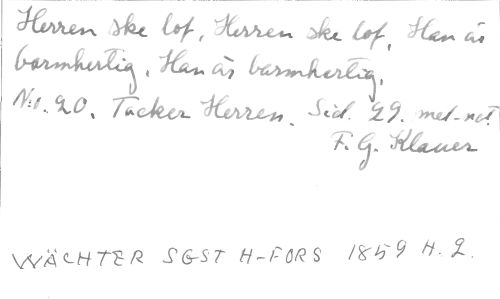 Herren ske lof, Herren ske lof, Han är
barmhertig, Han är barmhertig.
N:o. 20. Tacker Herren. Sid. 29. mel-not.
F. G. Klauer
WÄCHTER SGST H-FORS 1859 H. 2.